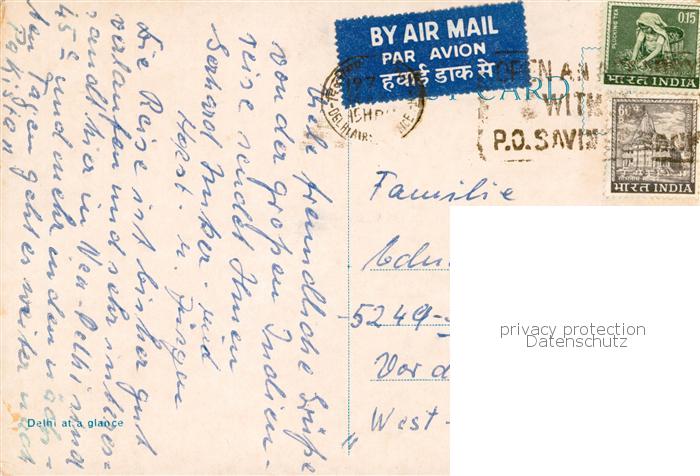 BY AIR MAIL
PAR AVION
हवाई डाक से
POST CARD
PLUCKING TEA
0.15
भारत INDIA
भारत INDIA
OPEN AN
WITH
P.O. SAVIN
Viele freundliche Grüße
von der großen Indien-
reise sendet Ihnen
Gerhard und
Horst u. Jürgen
Die Reise ist bisher gut
verlaufen und sehr interes-
sandt hier in Neu-Delhi sind
45° und mehr in den näch-
sten Tagen geht es weiter nach
Pakistan
Familie
5249-
Vor d
West-
Delhi at a glance
privacy protection
Datenschutz